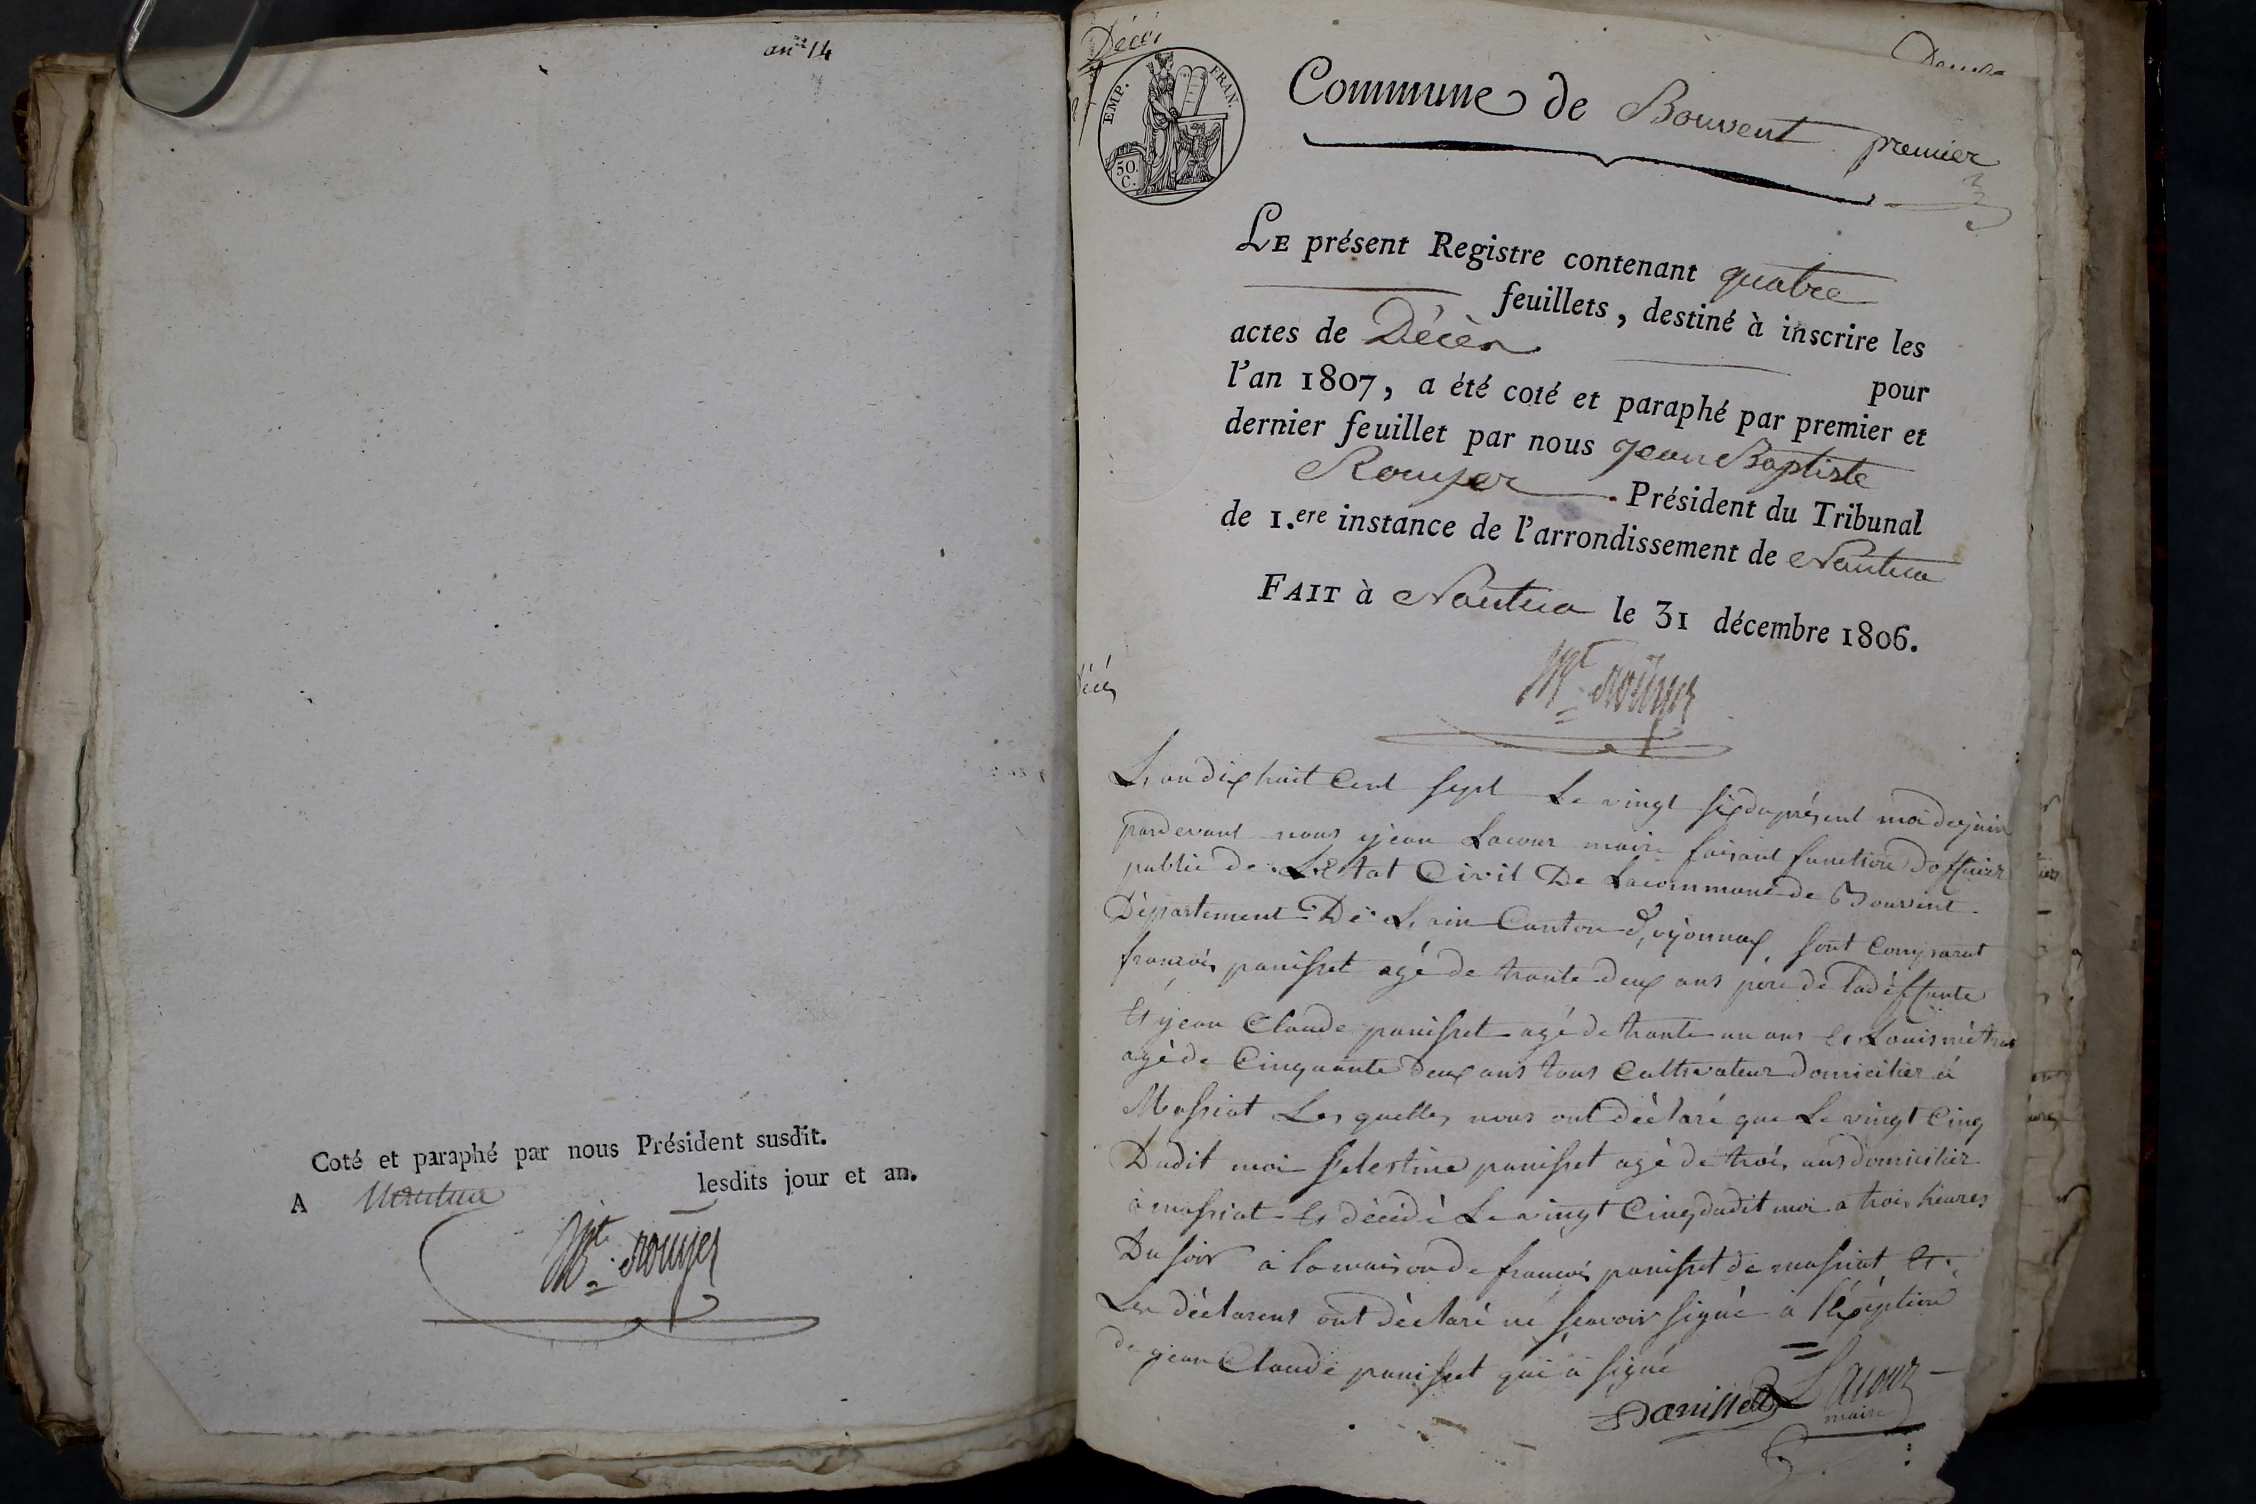 an 14
Coté et paraphé par nous Président susdit.
A Nantua lesdits jour et an.
Bte. Rouyer
Décès
EMP. FRAN.
50. C.
Commune de Bouvent premier
LE présent Registre contenant quatre
feuillets, destiné à inscrire les
actes de Décès pour
l'an 1807, a été coté et paraphé par premier et
dernier feuillet par nous Jean Baptiste
Rouyer Président du Tribunal
de 1.ere instance de l'arrondissement de Nantua
FAIT à Nantua le 31 décembre 1806.
Bte. Rouyer
Décès
L'an dix huit Cent sept Le vingt six du présent moi de juin
pardevant nous jean Lacour maire faisant function d'officier
public de L'Etat Civil De La commune de Bouvent
Département De L'ain Canton d'oyonnax sont Comparut
françois panisset agé de trante deux ans pere de la déffunte
Et jean Claude panisset agé de trante un ans Et Louis métras
agé de Cinquante deux ans tous Cultivateur domicilier à
Massiat Les quelles nous ont déclaré que Le vingt Cinq
Dudit moi Selestine panisset agé de trois ans domicilier
à massiat Et décédé Le vingt Cinq dudit moi a trois heures
Du soir a la maison de françois panisset de massiat Et
Les déclarent ont déclaré ne scavoir signé à l'éxception
de jean Claude panisset qui a signé
Panisset Lacour
maire